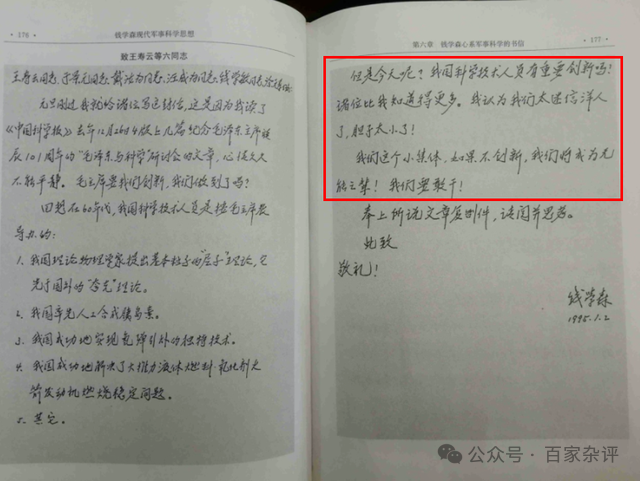 · 176 ·
钱学森现代军事科学思想
致王寿云等六同志
王寿云同志、于景元同志、戴汝为同志、汪成为同志、钱学敏同志、涂元季同志:
元旦刚过,我就给诸位写这封信,这是因为我读了
《中国科学报》去年12月26日4版上几篇纪念毛泽东主席诞
辰101周年的“毛泽东与科学”研讨会的文章,心情久久
不能平静。毛主席要我们创新,我们做到了吗?
回想在60年代,我国科学技术人员是按毛主席教
导办的:
1、我国理论物理学家提出基本粒子的“层子”理论,它
先于国外的“夸克”理论。
2、我国率先人工合成胰岛素。
3、我国成功地实现氢弹引爆的独特技术。
4、我国成功地解决了大推力液体燃料氧化剂火
箭发动机燃烧稳定问题。
5、其它。
第六章 钱学森心系军事科学的书信
· 177 ·
但是今天呢?我国科学技术人员有重要创新吗?
诸位比我知道得更多。我认为我们太迷信洋人
了,胆子太小了!
我们这个小集体,如果不创新,我们将成为无
能之辈!我们要敢干!
奉上所说文章复印件,请阅并思考。
此致
敬礼!
钱学森
1995.1.2
公众号 · 百家杂评